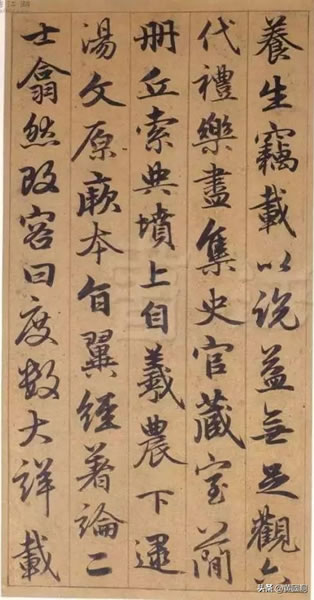 養生竊載以說益無足觀六
代禮樂盡集史官藏室簡
冊丘索典墳上自羲農下逮
湯文原厥本旨翼經著論二
士翕然改容曰度數大詳載
头条